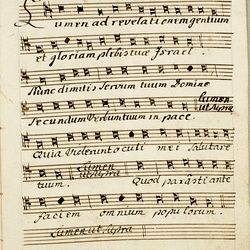 Lumen ad revelationem gentium
et gloriam plebis tuæ Israel.
Nunc dimitis Servum tuum Domine
Secundum Verbum tuum in pace. Lumen ut supra
Quia Viderunt oculi mei Salutare
tuum. Lumen ut supra Quod parasti ante
faciem omnium populorum.
Lumen ut supra